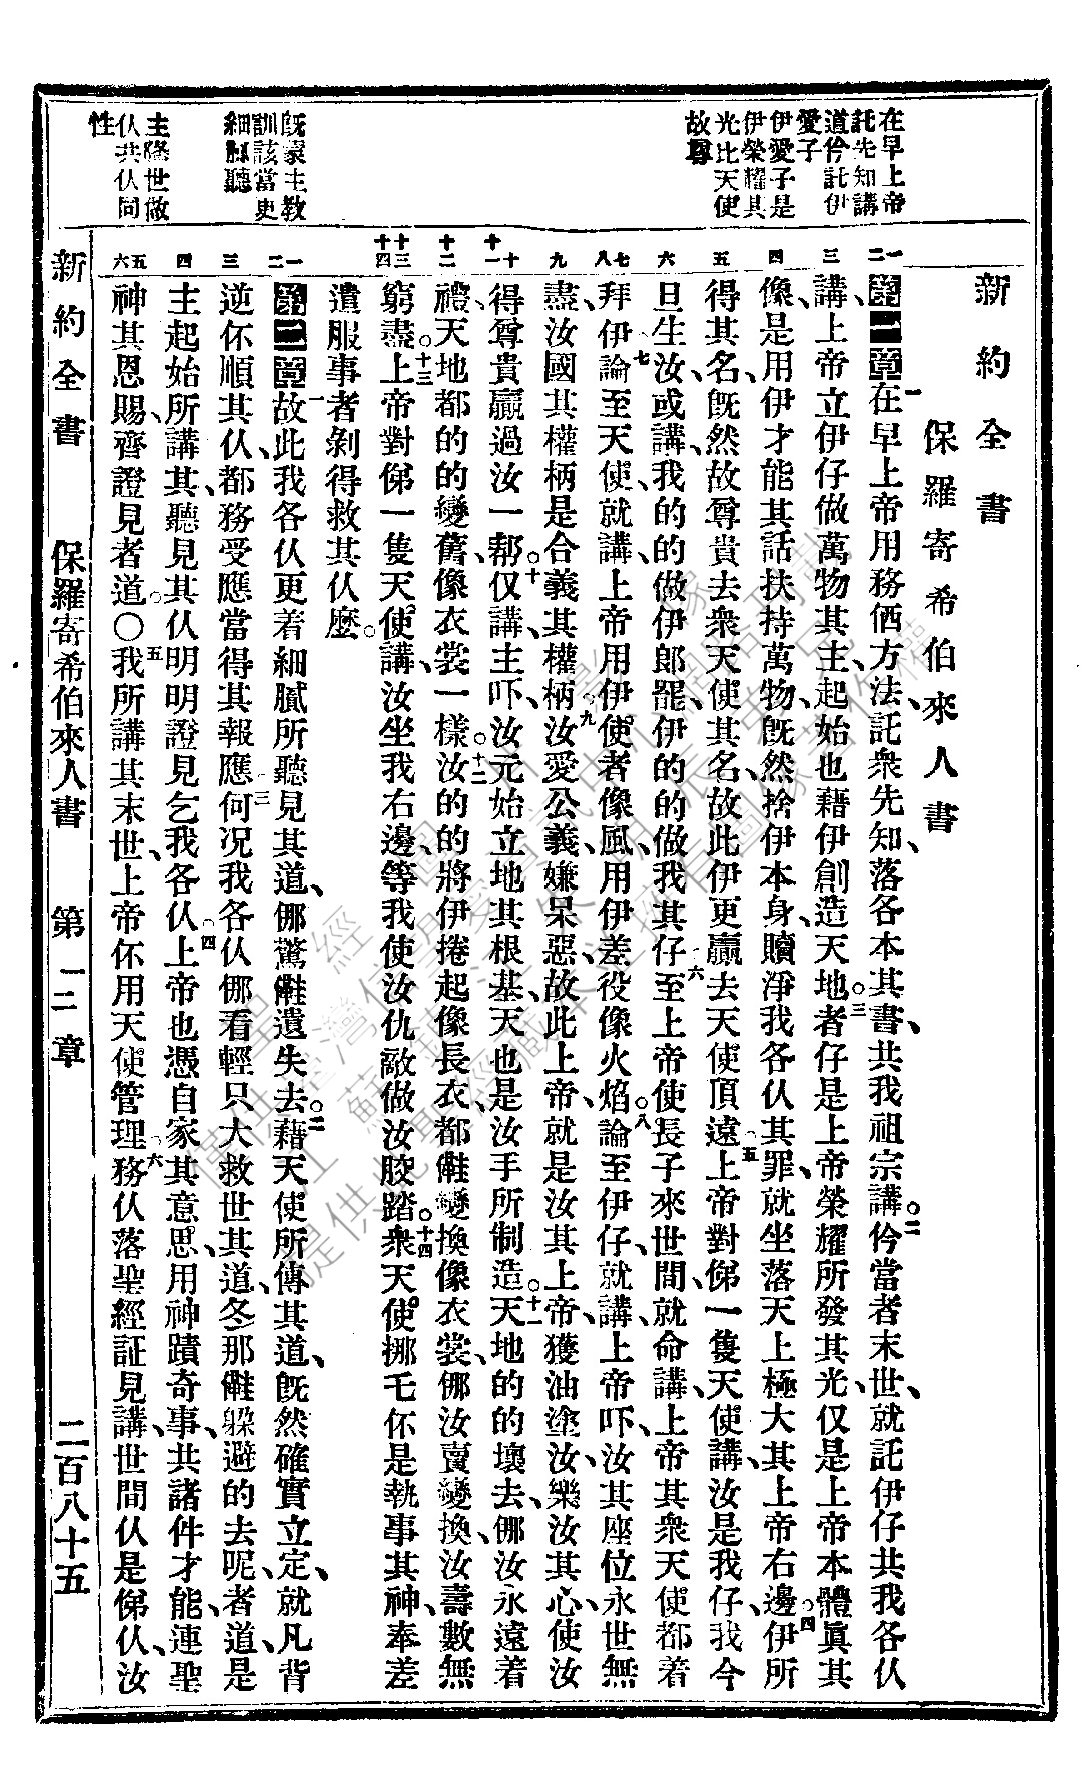 新約全書
保羅寄希伯來人書
在早上帝
託先知講
道仱託伊
愛子
伊愛子是
伊榮耀其
光比天使
故尊
既蒙主教
訓該當更
細膩聽
主降世做
仈共仈同
性
第一章在早上帝用務倆方法託衆先知落各本其書共我祖宗講仱當者末世就託伊仔共我各仈
講上帝立伊仔做萬物其主起始也藉伊創造天地者仔是上帝榮耀所發其光仅是上帝本體眞其
像是用伊才能其話扶持萬物既然捨伊本身贖淨我各仈其罪就坐落天上極大其上帝右邊伊所
得其名既然故尊貴去衆天使其名故此伊更贏去天使頂遠上帝對俤一隻天使講汝是我仔我今
旦生汝或講我的的做伊郎罷伊的的做我其仔至上帝使長子來世間就命講上帝其衆天使都着
拜伊論至天使就講上帝用伊使者像風用伊差役像火焰論至伊仔就講上帝吓汝其座位永世無
盡汝國其權柄是合義其權柄汝愛公義嫌呆惡故此上帝就是汝其上帝獲油塗汝樂汝其心使汝
得尊貴贏過汝一帮仅講主吓汝元始立地其根基天也是汝手所制造天地的的壞去倻汝永遠着
禮天地都的的變舊像衣裳一樣汝的的將伊捲起像長衣都𣍐變換像衣裳倻汝賣變換汝壽數無
窮盡上帝對俤一隻天使講汝坐我右邊等我使汝仇敵做汝骹踏衆天使挪乇伓是執事其神奉差
遣服事者剝得救其仈麽
第二章故此我各仈更着細膩所聽見其道倻驚𣍐遺失去藉天使所傳其道既然確實立定就凡背
逆伓順其仈都務受應當得其報應何况我各仈倻看輕只大救世其道冬那𣍐躲避的去呢者道是
主起始所講其聽見其仈明明證見乞我各仈上帝也憑自家其意思用神蹟奇事共諸件才能連聖
神其恩賜齊證見者道〇我所講其末世上帝伓用天使管理務仈落聖經証見講世間仈是俤仈汝
新約全書 保羅寄希伯來人書 第一二章 二百八十五